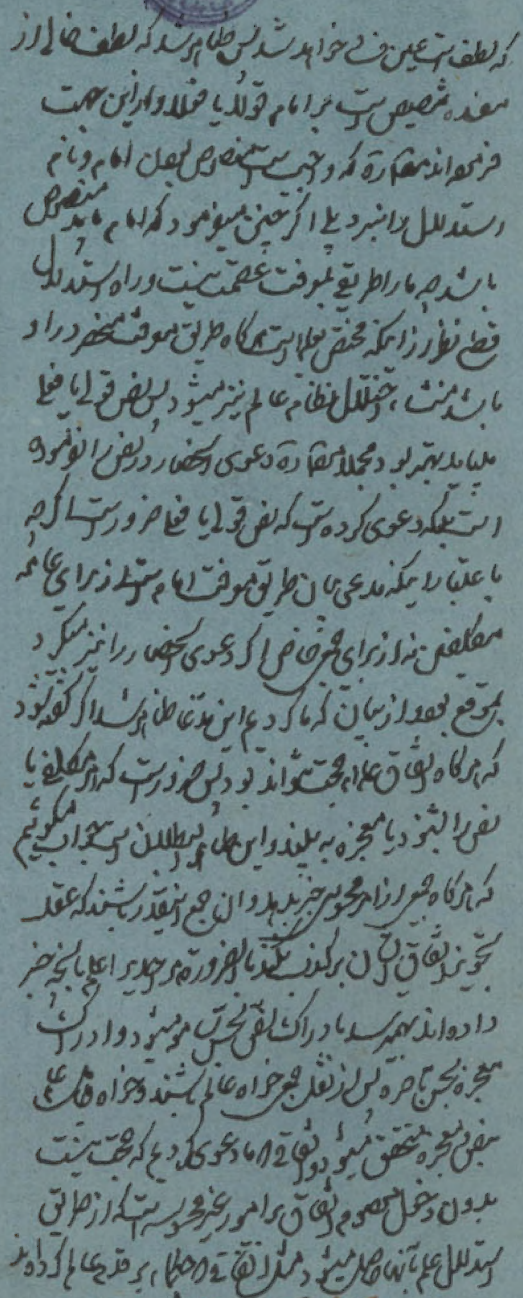 که لطف است عین فی خواهد شد پس ظاهر شد که لطف خالی از
مفسده تنصیص است بر امام قولا یا فعلا و از این جهت
فرموده اند که واجب است منصوص بودن امام و نام
استدلال را نبرد بلی اگر چنین میفرمود که امام باید منصوص
باشد چه ما را طریقی بمعرفت عصمت نیست و راه استدلال
قطع نظر از اینکه مختص بعلما است هرگاه طریق معرفت منحصر در او
باشد منشاء اختلال نظام عالم نیز میشود پس نص قولی یا فعلی
میباید بهتر بود و مجملا دعوی انحصار در نص را نفرموده
است بلکه دعوی کرده است که نص قولی یا فعلی ضرور است اگر چه
باعتبار اینکه مدعی بیان طریق معرفت امام است از برای عامه
مکلفین نه از برای جمعی خاص اگر دعوی انحصار را نیز میکرد
بموقع بود و از بیانی که ما کردیم این مدعا ظاهر شد اگر گفته شود
که هرگاه اتفاق علماء حجت نتواند بود پس ضرور است که هر مکلفی یا
نص را بشنود یا معجزه به بیند و این ظاهر البطلان است جواب میگوئیم
که هرگاه جمعی از امر محسوسی خبر بدهد و آن جمع اینقدر باشند که عقل
تجویز اتفاق ایشان بر کذب نکند بالضروره هر احدی را علم بآنچه خبر
داده اند بهم رسد با دراک نص بحس میشود و ادراک
معجزه بحس باصره پس از نقل جمعی خواه عالم باشند و خواه
نص و معجزه متحقق میشود و اتفاقی را ما دعوی کردیم که حجت نیست
بدون دخول معصوم اتفاق بر امور غیر محسوسه است که از طریق
استدلال علم بآنها حاصل میشود مثل اتفاقی که حکماء بر قدم عالم کرده اند